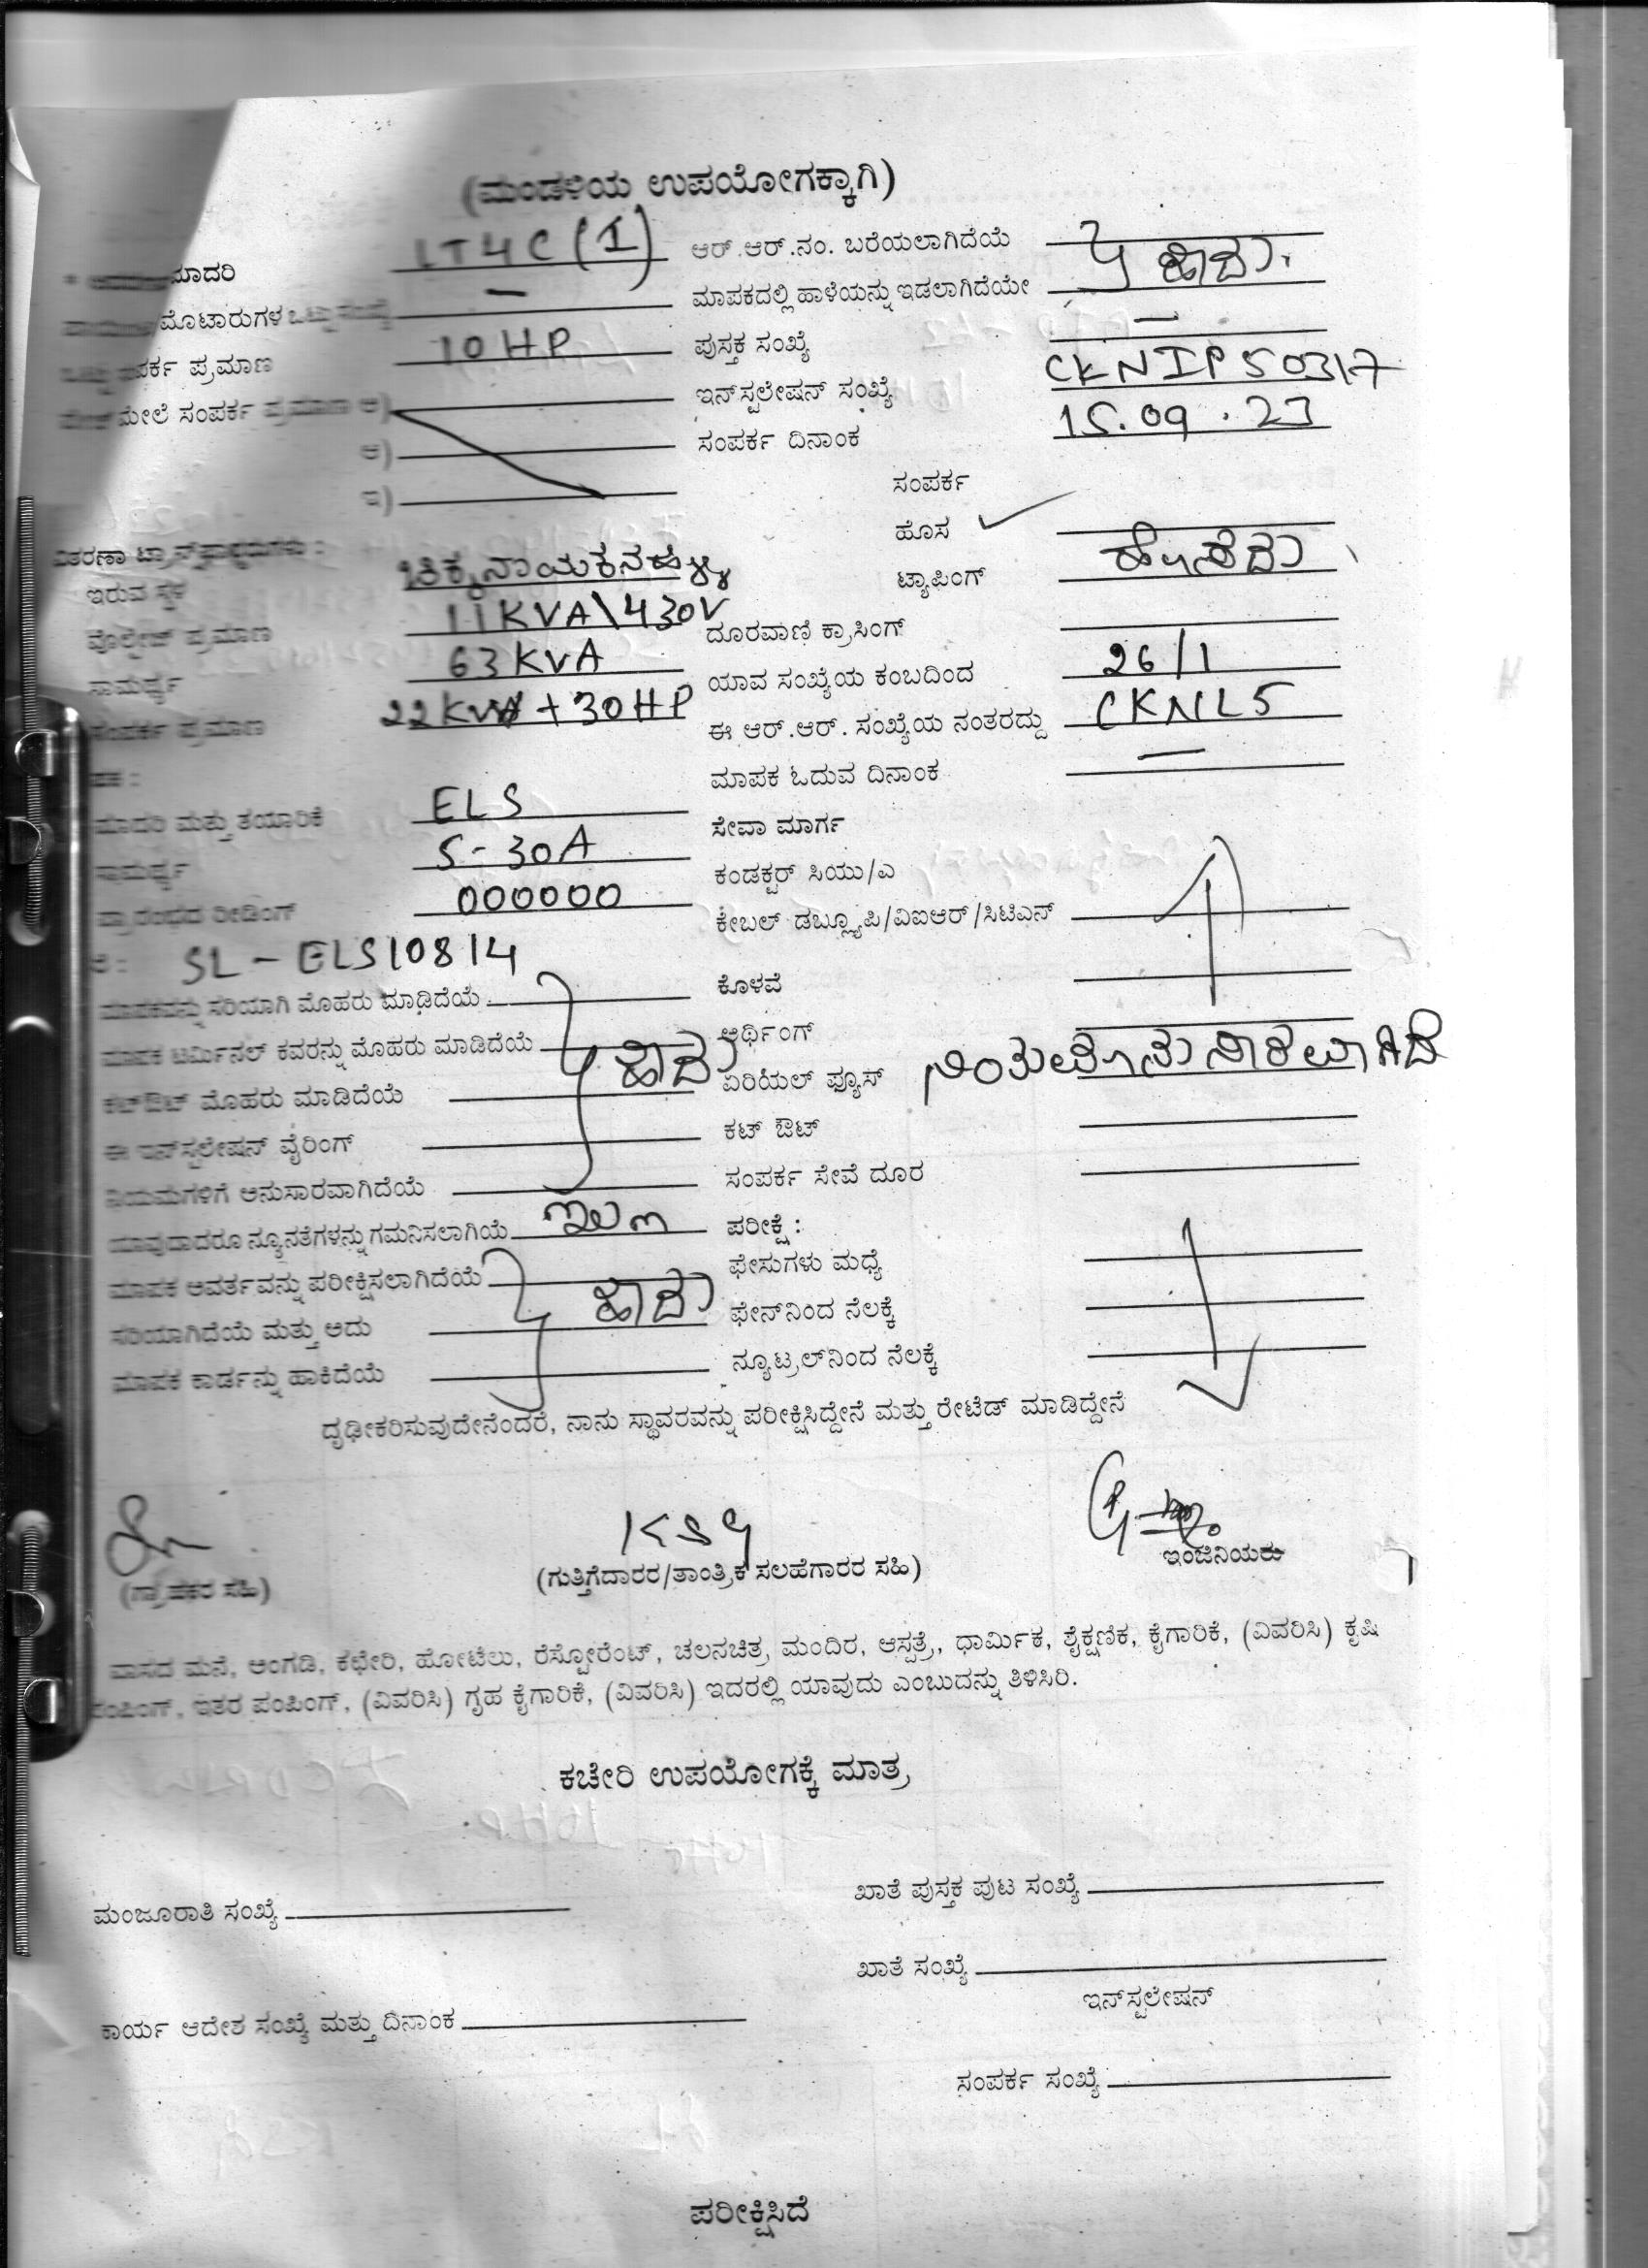 (ಮಂಡಳಿಯ ಉಪಯೋಗಕ್ಕಾಗಿ)
ಮಾದರಿ LT4C (I) ಆರ್.ಆರ್.ನಂ. ಬರೆಯಲಾಗಿದೆಯೆ
ಮೊಟಾರುಗಳ ಒಟ್ಟು ಸಂಖ್ಯೆ — ಮಾಪಕದಲ್ಲಿ ಹಾಳೆಯನ್ನು ಇಡಲಾಗಿದೆಯೇ } ಹೌದು.
ಒಟ್ಟು ಸಂಪರ್ಕ ಪ್ರಮಾಣ 10 HP ಪುಸ್ತಕ ಸಂಖ್ಯೆ —
ಮೇಲೆ ಸಂಪರ್ಕ ಪ್ರಮಾಣ ಅ) ಇನ್‌ಸ್ಟಲೇಷನ್ ಸಂಖ್ಯೆ CKNIP50317
ಆ) ಸಂಪರ್ಕ ದಿನಾಂಕ 15.09.23
ಇ) ಸಂಪರ್ಕ
ಹೊಸ ✓
ವಿತರಣಾ ಟ್ರಾನ್ಸ್‌ಫಾರ್ಮರುಗಳು :
ಇರುವ ಸ್ಥಳ ಚಿಕ್ಕನಾಯಕನಹಳ್ಳಿ ಟ್ಯಾಪಿಂಗ್ ಹೊಸದು
ವೊಲ್ಟೇಜ್ ಪ್ರಮಾಣ 11KVA\430V ದೂರವಾಣಿ ಕ್ರಾಸಿಂಗ್
ಸಾಮರ್ಥ್ಯ 63 KVA ಯಾವ ಸಂಖ್ಯೆಯ ಕಂಬದಿಂದ 26/1
ಸಂಪರ್ಕ ಪ್ರಮಾಣ 22KW + 30HP ಈ ಆರ್.ಆರ್. ಸಂಖ್ಯೆಯ ನಂತರದ್ದು CKNL5
ಮಾಪಕ ಓದುವ ದಿನಾಂಕ —
ಮಾದರಿ ಮತ್ತು ತಯಾರಿಕೆ ELS ಸೇವಾ ಮಾರ್ಗ
ಸಾಮರ್ಥ್ಯ 5-30A ಕಂಡಕ್ಟರ್ ಸಿಯು/ಎ
ಪ್ರಾರಂಭದ ರೀಡಿಂಗ್ 000000 ಕೇಬಲ್ ಡಬ್ಲ್ಯೂಪಿ/ವಿಐಆರ್/ಸಿಟಿಎನ್
SL - ELS10814
ಮಾಪಕವನ್ನು ಸರಿಯಾಗಿ ಮೊಹರು ಮಾಡಿದೆಯೆ ಕೊಳವೆ
ಮಾಪಕ ಟರ್ಮಿನಲ್ ಕವರನ್ನು ಮೊಹರು ಮಾಡಿದೆಯೆ } ಹೌದು ಅರ್ಥಿಂಗ್
ಕಟ್‌ಔಟ್ ಮೊಹರು ಮಾಡಿದೆಯೆ ಏರಿಯಲ್ ಫ್ಯೂಸ್
ಈ ಇನ್‌ಸ್ಟಲೇಷನ್ ವೈರಿಂಗ್ ಕಟ್ ಔಟ್
ನಿಯಮಗಳಿಗೆ ಅನುಸಾರವಾಗಿದೆಯೆ ಸಂಪರ್ಕ ಸೇವೆ ದೂರ
ಯಾವುದಾದರೂ ನ್ಯೂನತೆಗಳನ್ನು ಗಮನಿಸಲಾಗಿಯೆ ಇಲ್ಲ ಪರೀಕ್ಷೆ :
ಮಾಪಕ ಆವರ್ತವನ್ನು ಪರೀಕ್ಷಿಸಲಾಗಿದೆಯೆ ಫೇಸುಗಳು ಮಧ್ಯೆ
ಸರಿಯಾಗಿದೆಯೆ ಮತ್ತು ಅದು } ಹೌದು ಫೇನ್‌ನಿಂದ ನೆಲಕ್ಕೆ
ಮಾಪಕ ಕಾರ್ಡನ್ನು ಹಾಕಿದೆಯೆ ನ್ಯೂಟ್ರಲ್‌ನಿಂದ ನೆಲಕ್ಕೆ
ದೃಢೀಕರಿಸುವುದೇನೆಂದರೆ, ನಾನು ಸ್ಥಾವರವನ್ನು ಪರೀಕ್ಷಿಸಿದ್ದೇನೆ ಮತ್ತು ರೇಟೆಡ್ ಮಾಡಿದ್ದೇನೆ
KSG
(ಗ್ರಾಹಕರ ಸಹಿ) (ಗುತ್ತಿಗೆದಾರರ/ತಾಂತ್ರಿಕ ಸಲಹೆಗಾರರ ಸಹಿ) ಇಂಜಿನಿಯರು
ವಾಸದ ಮನೆ, ಅಂಗಡಿ, ಕಛೇರಿ, ಹೋಟೆಲು, ರೆಸ್ಟೋರೆಂಟ್, ಚಲನಚಿತ್ರ ಮಂದಿರ, ಆಸ್ಪತ್ರೆ, ಧಾರ್ಮಿಕ, ಶೈಕ್ಷಣಿಕ, ಕೈಗಾರಿಕೆ, (ವಿವರಿಸಿ) ಕೃಷಿ
ಪಂಪಿಂಗ್, ಇತರ ಪಂಪಿಂಗ್, (ವಿವರಿಸಿ) ಗೃಹ ಕೈಗಾರಿಕೆ, (ವಿವರಿಸಿ) ಇದರಲ್ಲಿ ಯಾವುದು ಎಂಬುದನ್ನು ತಿಳಿಸಿರಿ.
ಕಚೇರಿ ಉಪಯೋಗಕ್ಕೆ ಮಾತ್ರ
ಮಂಜೂರಾತಿ ಸಂಖ್ಯೆ ಖಾತೆ ಪುಸ್ತಕ ಪುಟ ಸಂಖ್ಯೆ
ಖಾತೆ ಸಂಖ್ಯೆ
ಇನ್‌ಸ್ಟಲೇಷನ್
ಕಾರ್ಯ ಆದೇಶ ಸಂಖ್ಯೆ ಮತ್ತು ದಿನಾಂಕ
ಸಂಪರ್ಕ ಸಂಖ್ಯೆ
ಪರೀಕ್ಷಿಸಿದೆ